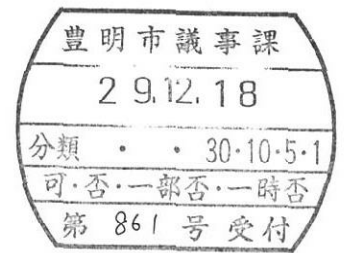 豊明市議事課
29.12.18
分類 ・ ・ 30・10・5・1
可・否・一部否・一時否
第 861 号 受付